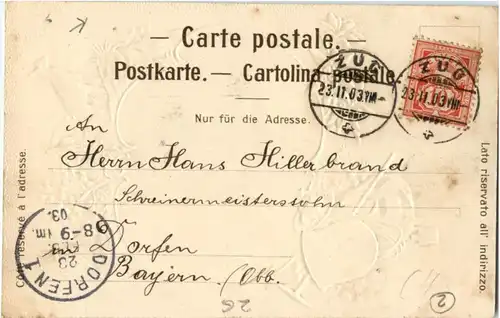 — Carte postale. —
Postkarte. — Cartolina postale.
Nur für die Adresse.
ZUG
23.II.03.VIII—
ZUG
23.II.03.VIII—
An
Herrn Hans Hillerbrand
Schreinermeisterssohn
in Dorfen
Bayern, Obb.
Côté réservé à l'adresse.
Lato riservato all' indirizzo.
DORFEN 1
23
FEB
8-9 Vm.
03.
26
2